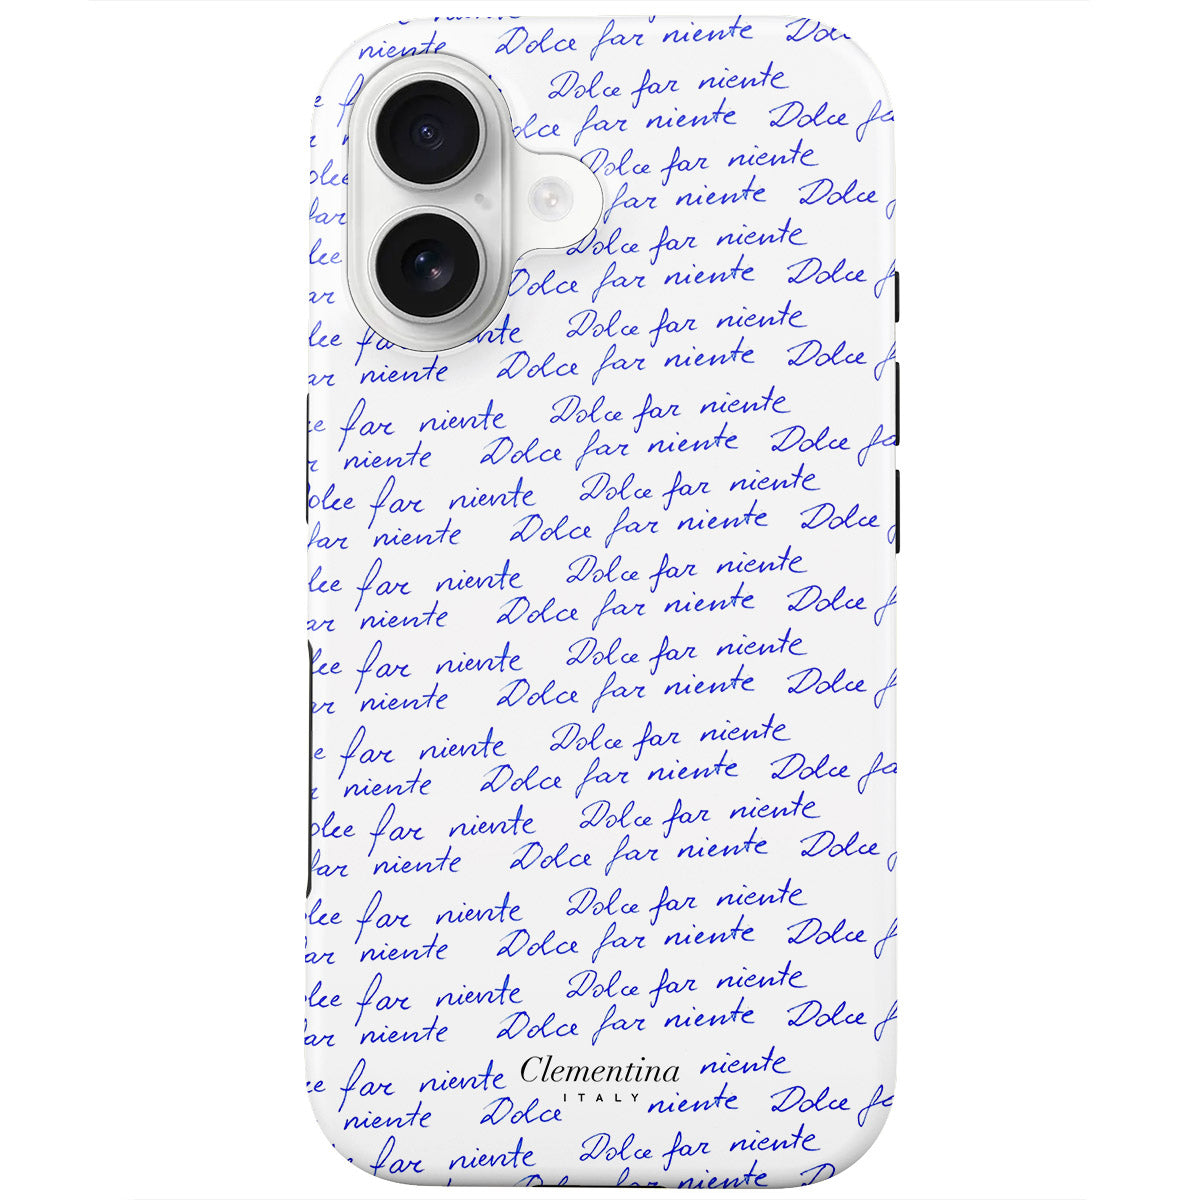 niente Dolce far niente
Dolce far niente
far niente Dolce
Dolce far niente
far niente Dolce
Dolce far niente
Dolce far niente Dolce
Dolce far niente
niente Dolce far niente Dolce
far niente Dolce far niente
niente Dolce far niente Dolce
far niente Dolce far niente
far niente Dolce far niente Dolce
far niente Dolce far niente
niente Dolce far niente Dolce
far niente Dolce far niente
niente Dolce far niente Dolce
far niente Dolce far niente
niente Dolce far niente Dolce
far niente Dolce far niente
far niente Dolce far niente Dolce
far niente Dolce far niente
niente Dolce far niente Dolce
far niente Dolce far niente
niente Dolce far niente Dolce
far niente Clementina niente
ITALY
niente Dolce niente Dolce
far niente Dolce far niente